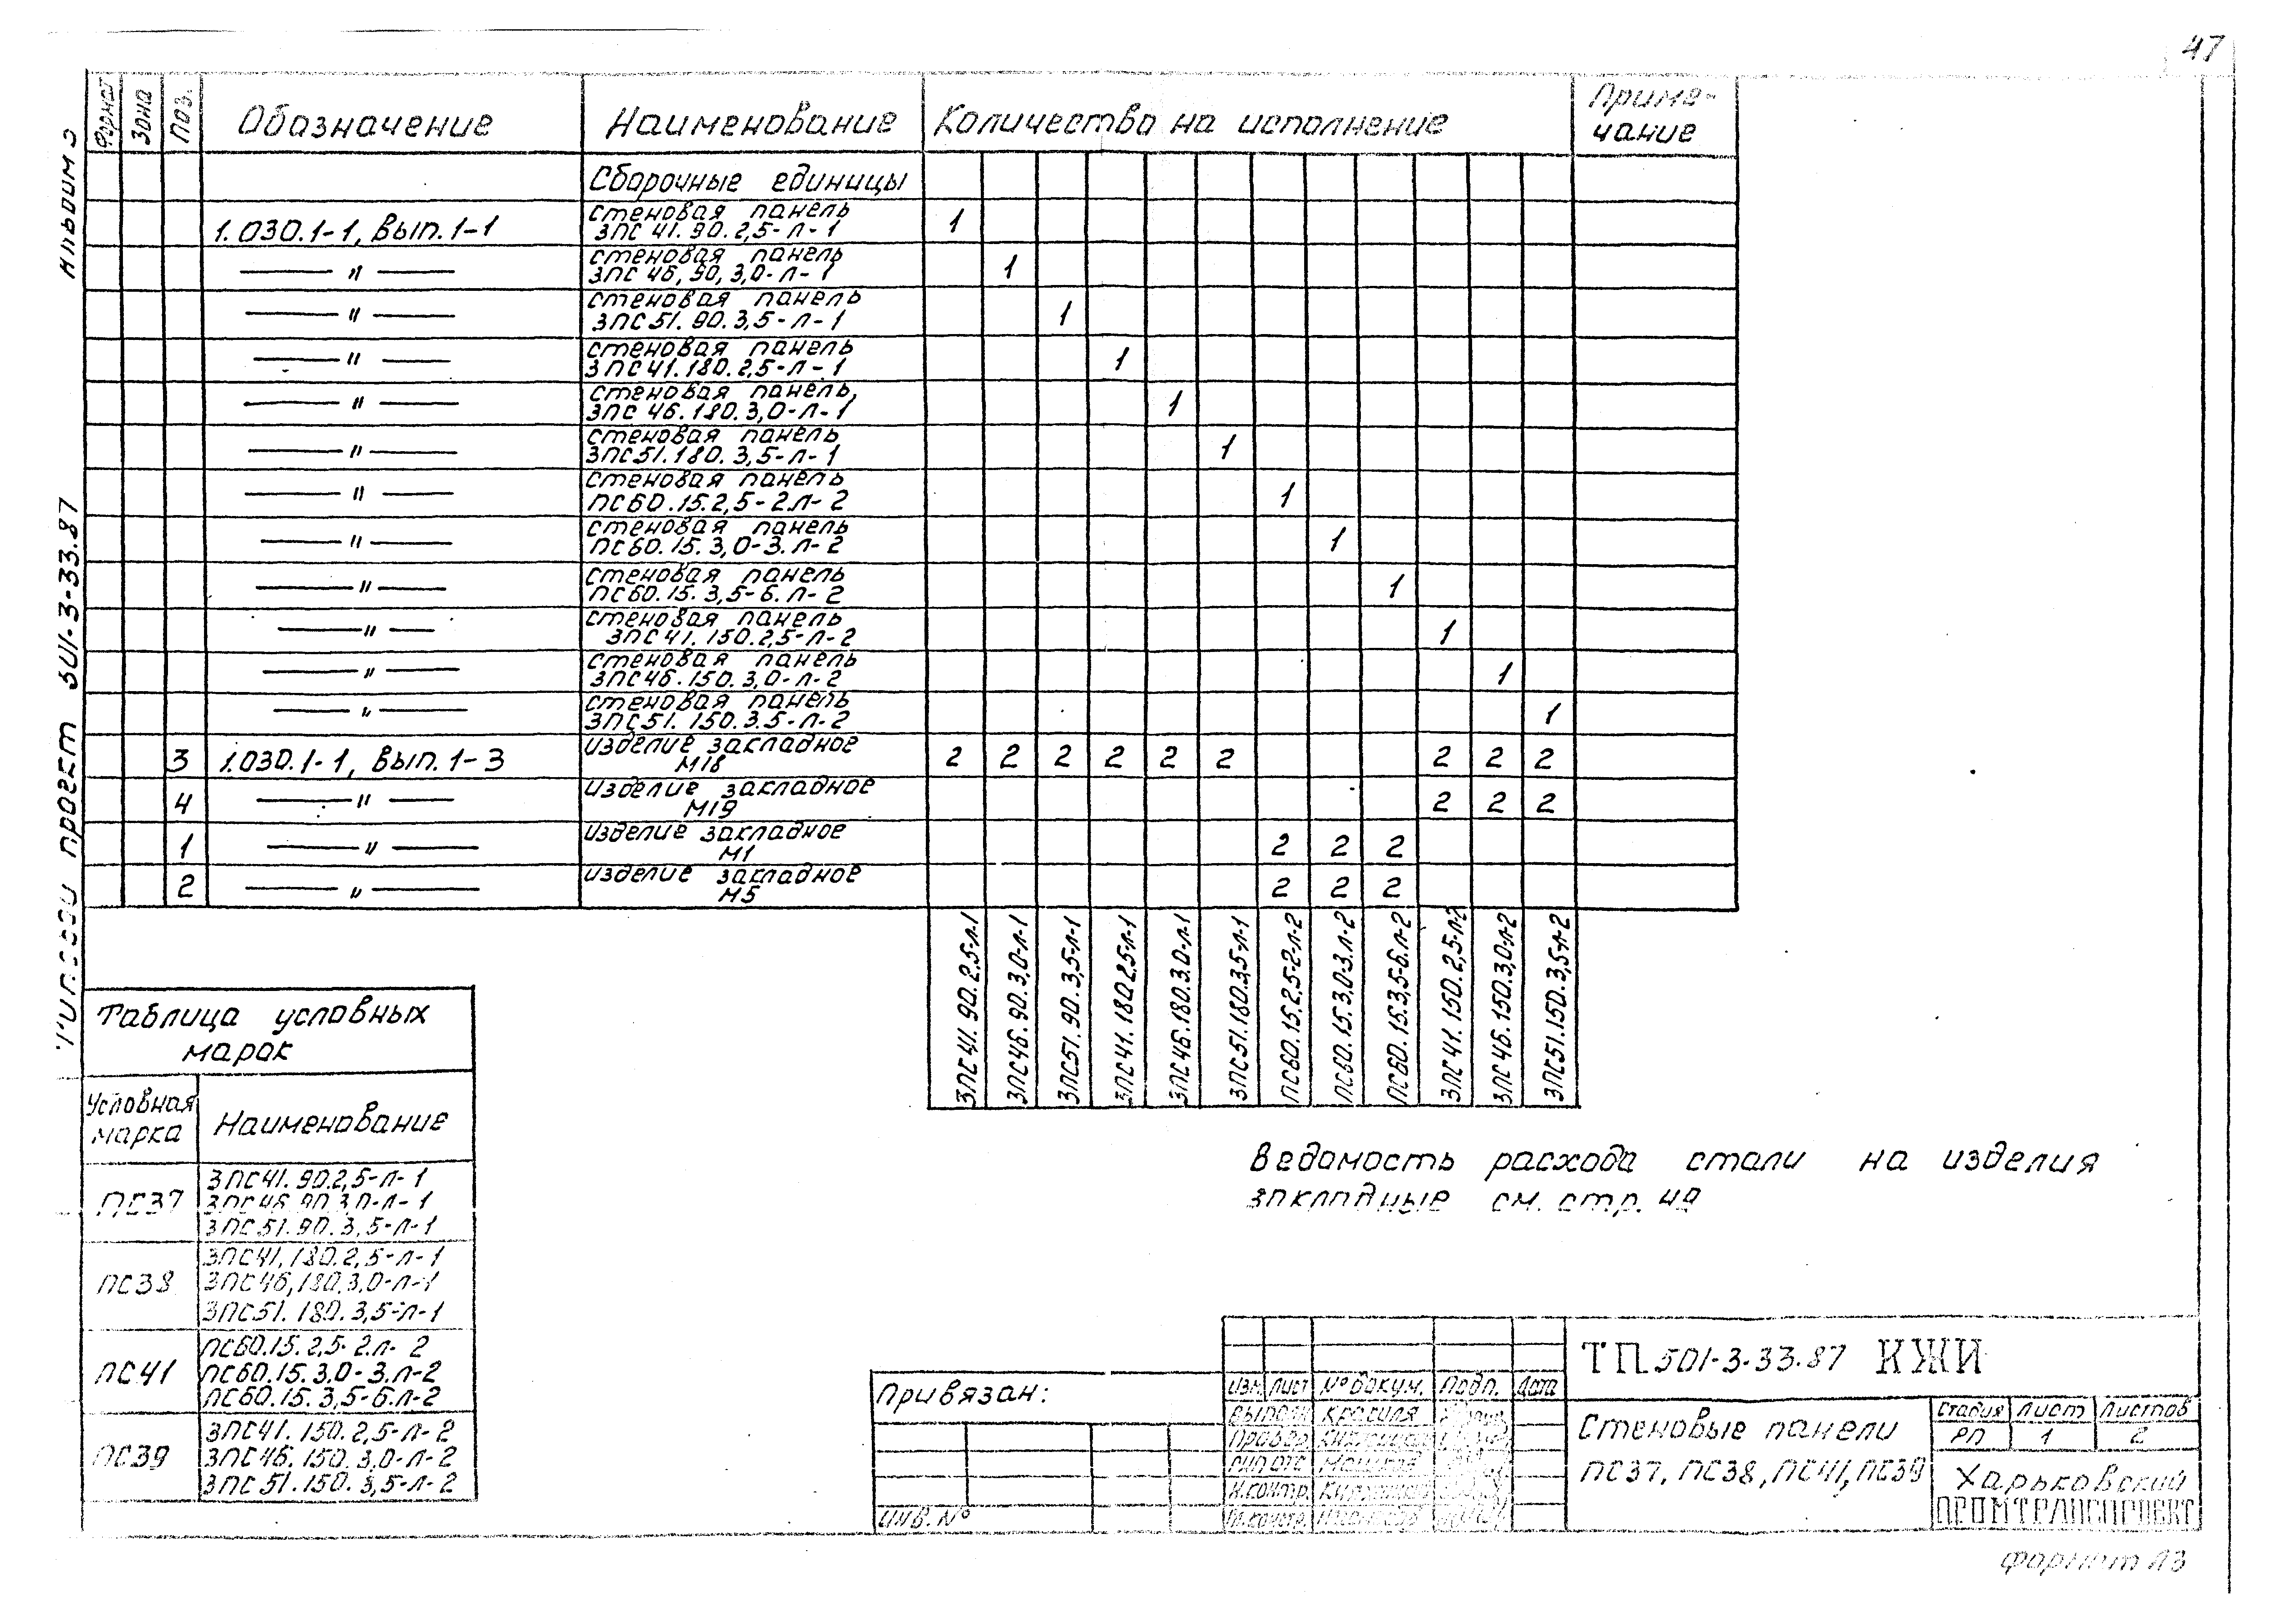 47
Альбом 3
Типовой проект 501-3-33.87
Формат Зона Поз. Обозначение Наименование Количество на исполнение Приме-
чание
Сборочные единицы
1.030.1-1, вып. 1-1 стеновая панель
3ПС 41.90.2,5-л-1 1
—— " —— стеновая панель
3ПС 46,90,3,0-л-1 1
—— " —— стеновая панель
3ПС51.90.3,5-л-1 1
—— " —— стеновая панель
3ПС41.180.2,5-л-1 1
—— " —— стеновая панель,
3ПС 46.180.3,0-л-1 1
—— " —— стеновая панель
3ПС51.180.3,5-л-1 1
—— " —— стеновая панель
ПС60.15.2,5-2.л-2 1
—— " —— стеновая панель
ПС60.15.3,0-3.л-2 1
—— " —— стеновая панель
ПС60.15.3,5-6.л-2 1
—— " —— стеновая панель
3ПС41.150.2,5-л-2 1
—— " —— стеновая панель
3ПС46.150.3,0-л-2 1
—— " —— стеновая панель
3ПС51.150.3.5-л-2 1
3 1.030.1-1, вып. 1-3 изделие закладное
М18 2 2 2 2 2 2 2 2 2
4 —— " —— изделие закладное
М19 2 2 2
1 —— " —— изделие закладное
М1 2 2 2
2 —— " —— изделие закладное
М5 2 2 2
3ПС41.90.2,5-л-1
3ПС46.90.3,0-л-1
3ПС51.90.3,5-л-1
3ПС41.180.2,5-л-1
3ПС46.180.3.0-л-1
3ПС51.180.3,5-л-1
ПС60.15.2,5-2-л-2
ПС60.15.3,0-3.л-2
ПС60.15.3,5-6.л-2
3ПС41.150.2,5-л-2
3ПС46.150.3,0-л-2
3ПС51.150.3,5-л-2
Таблица условных
марок
Условная
марка Наименование
ПС37 3ПС41.90.2,5-л-1
3ПС46.90.3,0-л-1
3ПС51.90.3,5-л-1
ПС38 3ПС41,180.2,5-л-1
3ПС46,180.3,0-л-1
3ПС51.180.3,5-л-1
ПС41 ПС60.15.2,5-2.л-2
ПС60.15.3.0-3.л-2
ПС60.15.3,5-6.л-2
ПС39 3ПС41.150.2,5-л-2
3ПС46.150.3,0-л-2
3ПС51.150.3,5-л-2
Ведомость расхода стали на изделия
закладные см. стр. 49
Привязан:
Инв. №
Изм. Лист № докум. Подп. Дата
Выполн.
Провер.
Н.контр.
Гл.констр.
ТП 501-3-33.87 КЖИ
Стеновые панели
ПС37, ПС38, ПС41, ПС39
Стадия Лист Листов
РП 1 2
Харьковский
ПРОМТРАНСПРОЕКТ
Формат А3